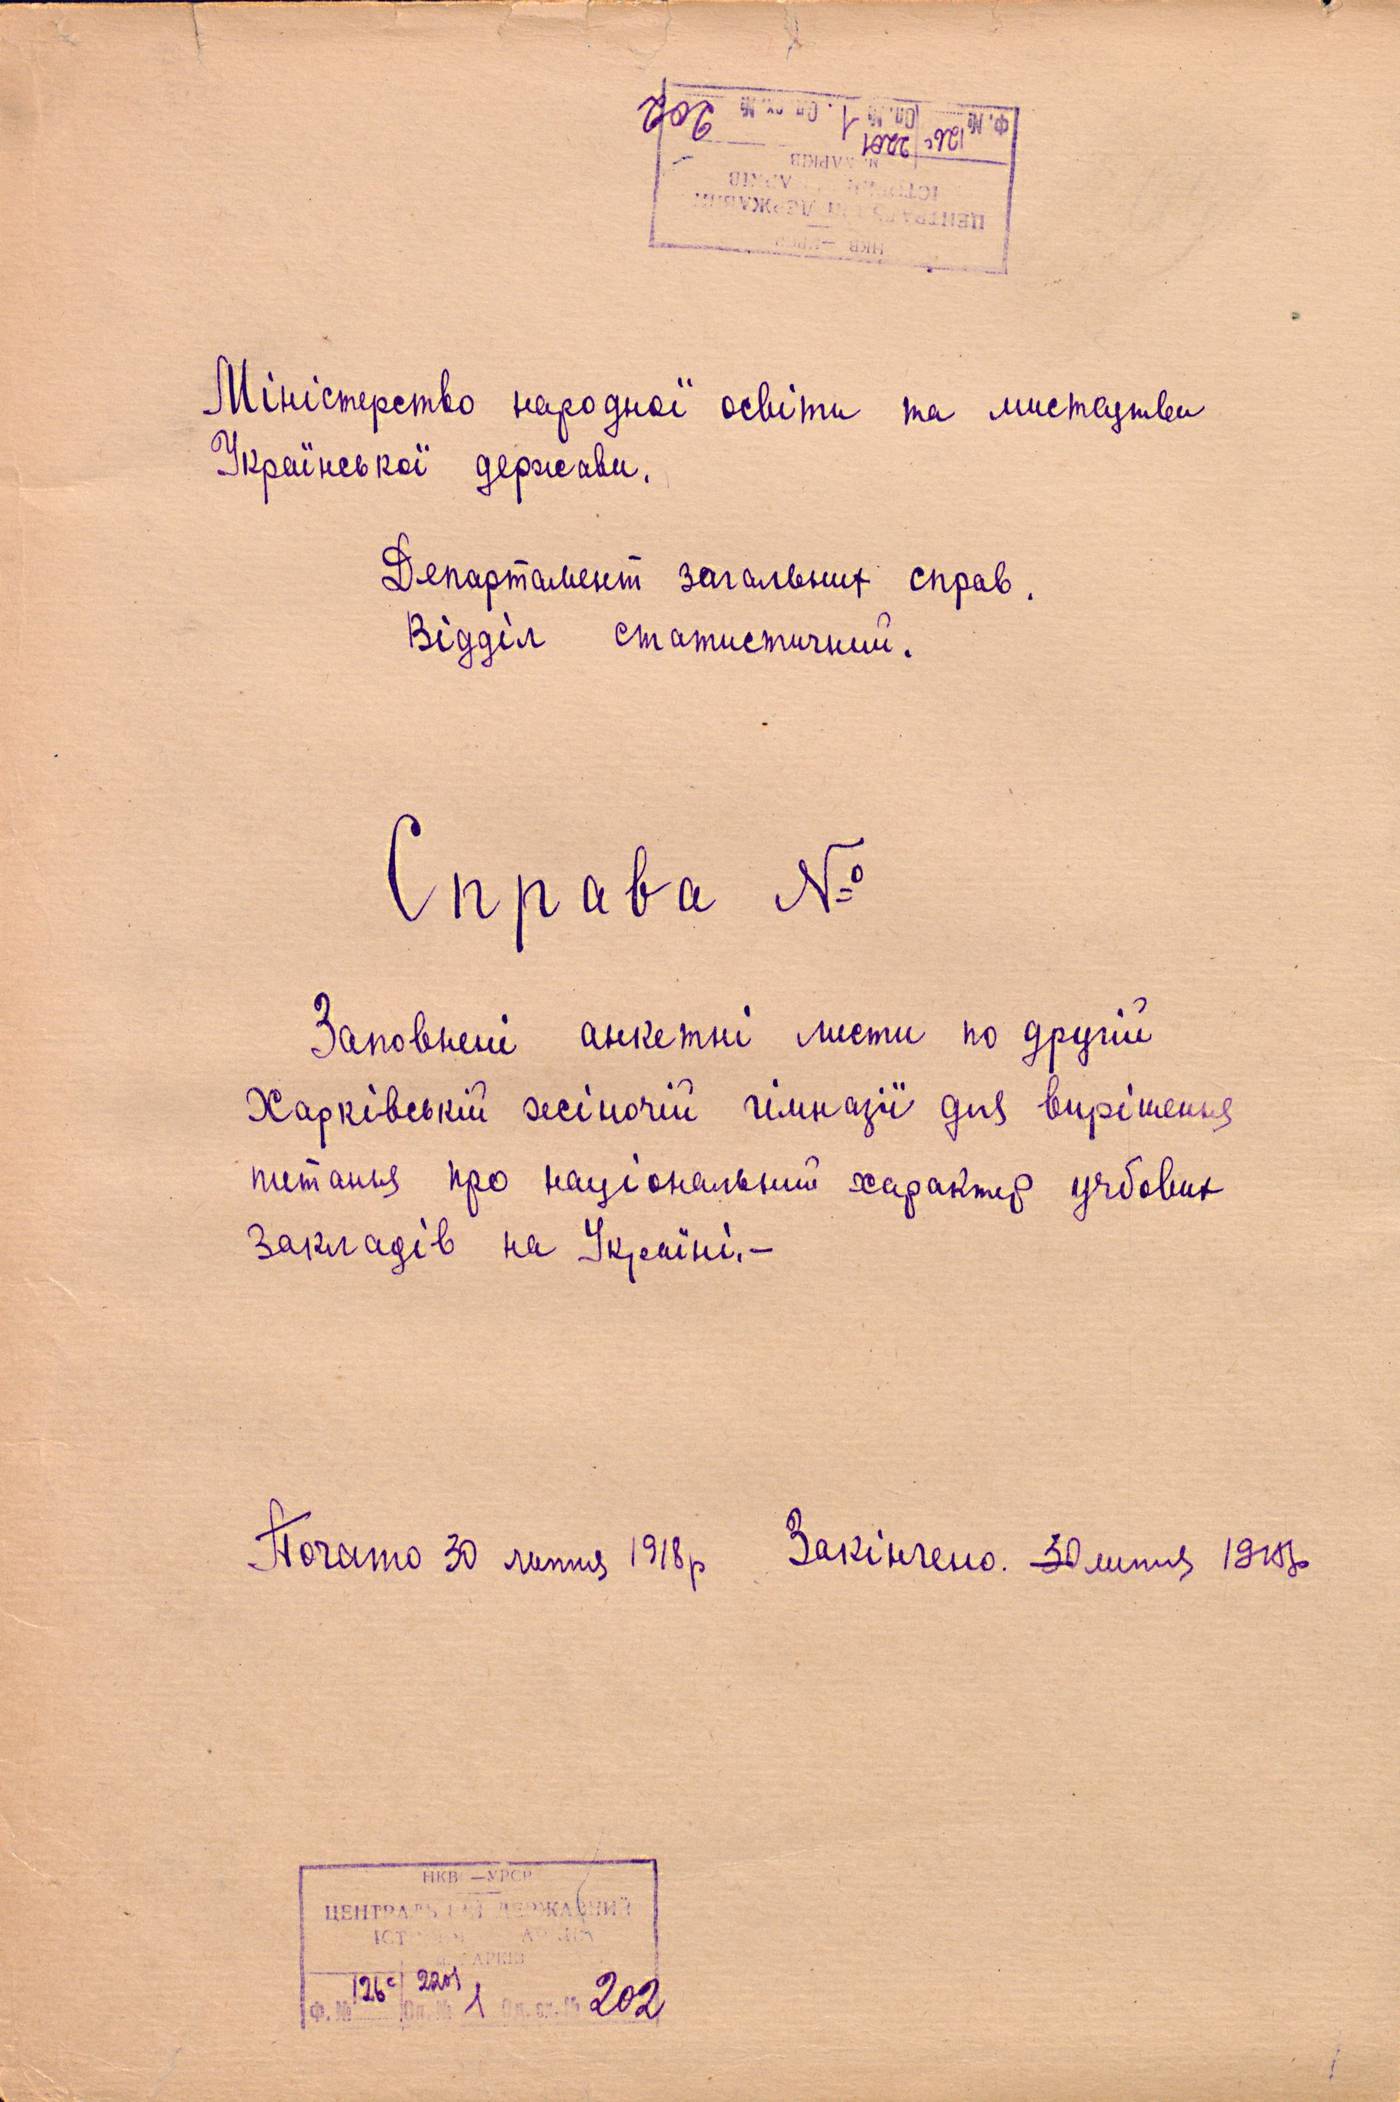 Ф. № 126с Оп. № 1 Од. сх. № 202
2201
м. ХАРКІВ
ЦЕНТРАЛЬНИЙ ДЕРЖАВНИЙ
НКВС — УРСР
Міністерство народної освіти та мистецтва
Української держави.
Департамент загальних справ.
Відділ статистичний.
Справа №
Заповнені анкетні листи по другій
Харківській жіночій гімназії для вирішення
питання про національний характер учбових
закладів на Україні.—
Почато 30 липня 1918 р Закінчено. 30 липня 1918р
НКВС — УРСР
ЦЕНТРАЛЬНИЙ ДЕРЖАВНИЙ
ІСТОРИЧНИЙ АРХІВ
м. ХАРКІВ
2201
Ф. № 126с Оп. № 1 Од. сх. № 202